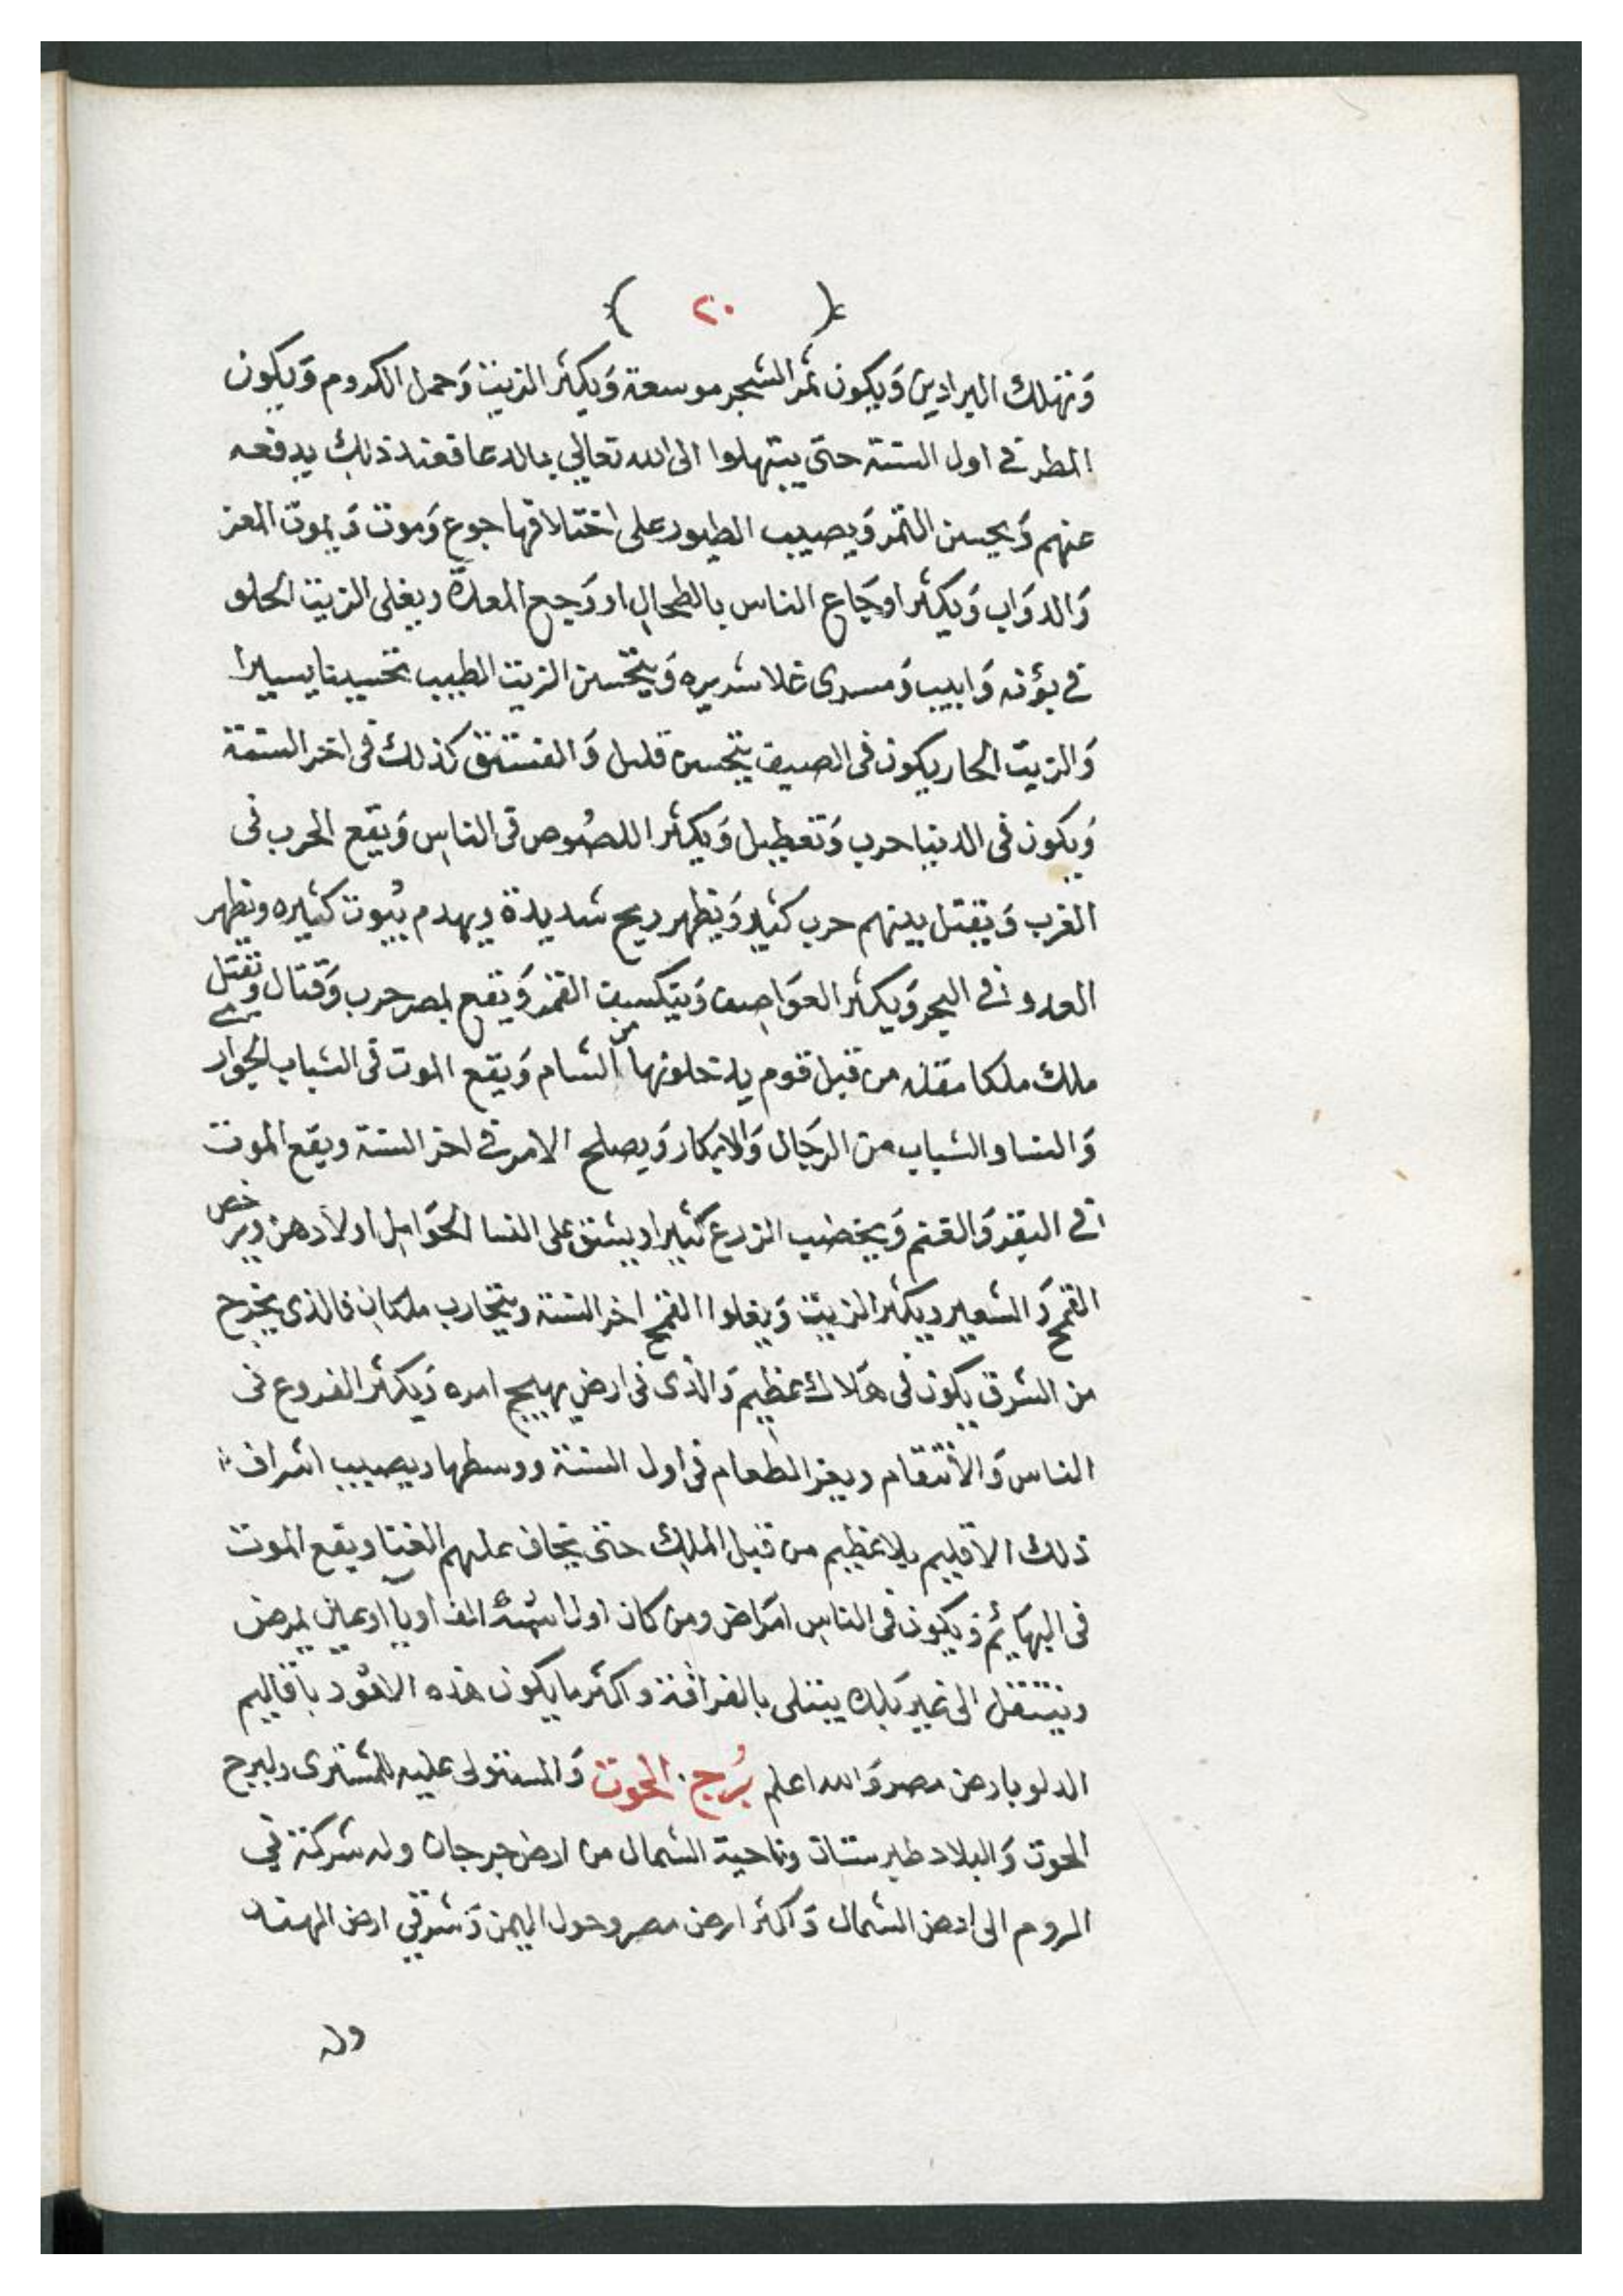 ( ٢٠ )
وَتهلك البرادين وَيكون ثمر الشجر موسعة وَيكثر الزيت وَحمل الكروم وَيكون
المطر في اول السنة حتى يبتهلوا الى الله تعالي بالدعا فعند ذلك يدفعه
عنهم وَيحسن الثمر وَيصيب الطيور على اختلافها جوع وَموت وَيموت المعز
وَالدوَاب وَيكثر اوجَاع الناس بالطحال او وَجع المعدَة ويغلى الزيت الحلو
في بؤنه وَابيب وَمسرى غلا شديره وَيتحسن الزيت الطيب تحسينا يسيرا
وَالزيت الحار يكون فى الصيف يتحسن قليل وَالفستق كذلك فى اخر السنة
وَيكون فى الدنيا حرب وَتعطيل وَيكثر اللصُوص فى الناس وَيقع الحرب فى
الغرب وَيقتل بينهم حرب كثير وَيظهر ريح شديدة ويهدم بُيوت كثيره ويظهر
العدو في البحر وَيكثر العوَاصف وَيتكسف القمر وَيقع بمصر حرب وَقتال وتقتل
ملك ملكا مقله من قبل قوم يدخلونها من الشام وَيقع الموت فى الشباب الجوار
وَالنسا والشباب من الرجَال وَالابكار وَيصلح الامر في اخر السنة ويقع الموت
في البقر وَالغنم وَيخصب الزرع كثيرا ويشق على النسا الحوَامل اولادهن ويرخص
القمح وَالشعير ويكثر الزيت وَيغلوا القمح اخر السنة ويتحارب ملكان فالذى يخرج
من الشرق يكون فى هَلاك عظيم وَالذى فى ارض يهيج امره وَيكثر الفروع فى
الناس وَالأنتقام ويعز الطعام فى اول السنة ووسطها ويصيب اشراف
ذلك الاقليم بلا عظيم من قبل الملك حتى يخاف عليهم الفنا ويقع الموت
فى البهَائم وَيكون فى الناس امرَاض ومن كان اول اسمه الف او يآ او عين يمرض
وينتقل الى غير بَلده يبتلى بالغرَافة واكثر ما يكون هذه الامُور باقاليم
الدلو بارض مصر وَالله اعلم بُرج الحوت وَالمستولى عليه المشترى ولبرج
الحوت وَالبلاد طبرستان وناحية الشمال من ارض جرجان وله شركة في
الروم الى ارض الشمال وَاكثر ارض مصر وحول اليمن وَشرقي ارض الهند
وله